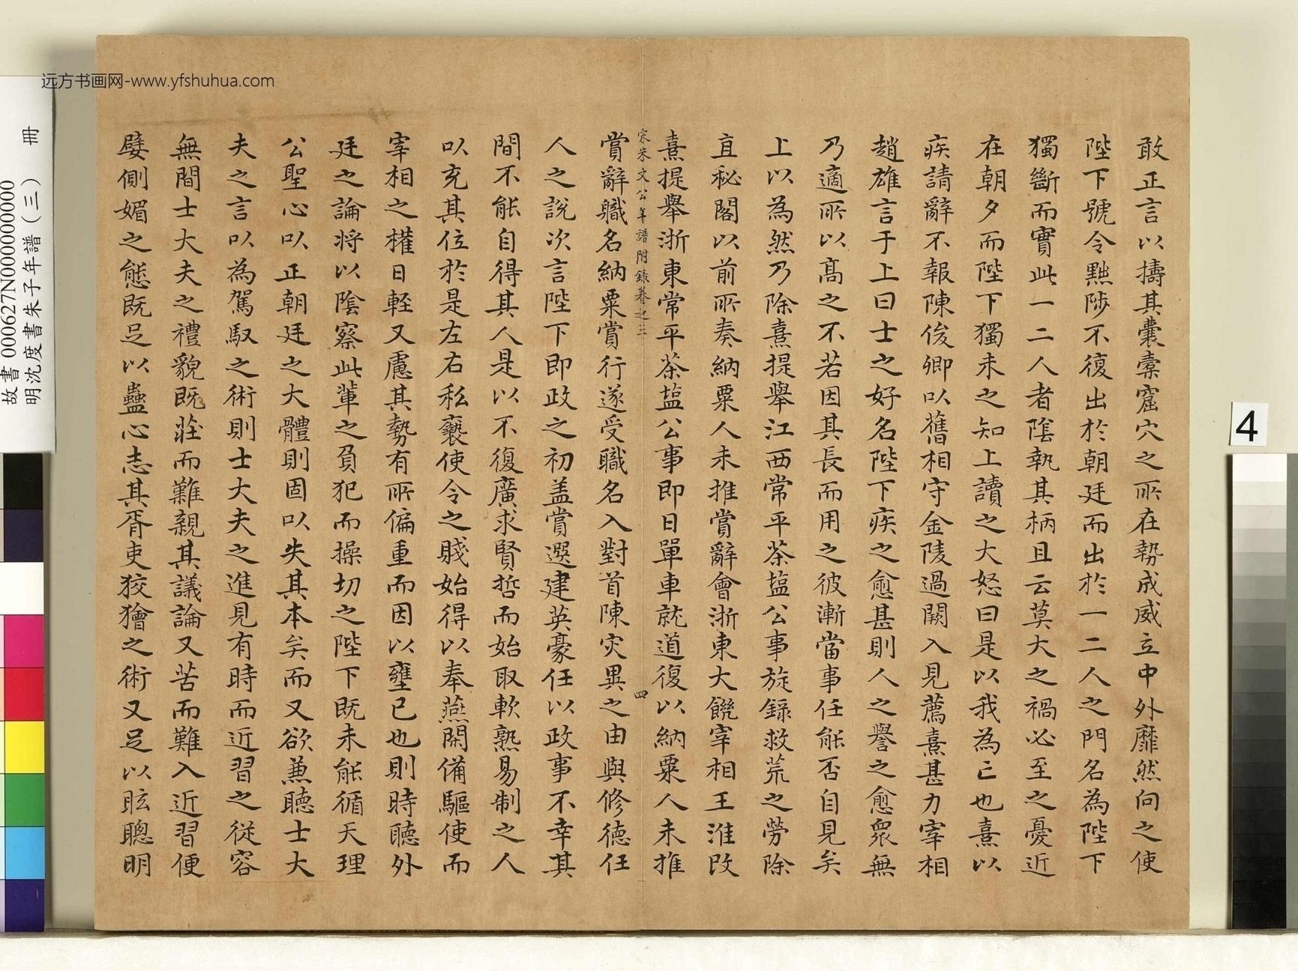 远方书画网-www.yfshuhua.com
敢正言以擣其囊橐窟穴之所在勢成威立中外靡然向之使
陛下號令黜陟不復出於朝廷而出於一二人之門名為陛下
獨斷而實此一二人者陰執其柄且云莫大之禍必至之憂近
在朝夕而陛下獨未之知上讀之大怒曰是以我為亡也熹以
疾請辭不報陳俊卿以舊相守金陵過闕入見薦熹甚力宰相
趙雄言于上曰士之好名陛下疾之愈甚則人之譽之愈衆無
乃適所以高之不若因其長而用之彼漸當事任能否自見矣
上以為然乃除熹提舉江西常平茶塩公事旋録救荒之勞除
直秘閣以前所奏納粟人未推賞辭會浙東大饑宰相王淮改
熹提舉浙東常平茶塩公事即日單車就道復以納粟人未推
宋朱文公年譜附録卷之三
四
賞辭職名納粟賞行遂受職名入對首陳灾異之由與修德任
人之說次言陛下即政之初盖嘗選建英豪任以政事不幸其
間不能自得其人是以不復廣求賢哲而始取軟熟易制之人
以充其位於是左右私䙝使令之賤始得以奉燕閑備驅使而
宰相之權日輕又慮其勢有所偏重而因以壅已也則時聽外
廷之論將以陰察此輩之負犯而操切之陛下既未能循天理
公聖心以正朝廷之大體則固以失其本矣而又欲兼聽士大
夫之言以為駕馭之術則士大夫之進見有時而近習之從容
無間士大夫之禮貌既莊而難親其議論又苦而難入近習便
嬖側媚之態既足以蠱心志其胥吏狡獪之術又足以眩聰明
故書 000627N000000000 冊
明沈度書朱子年譜(三)
4